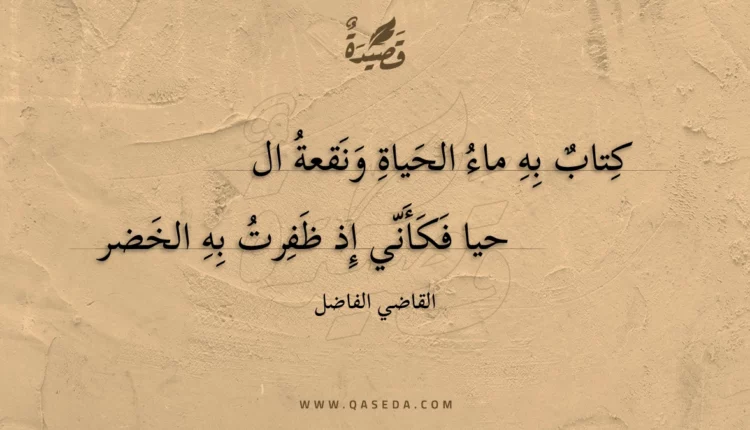 قَصِيدَةٌ
كِتابٌ بِهِ ماءُ الحَياةِ وَنَقعةُ ال
حيا فَكَأَنّي إِذ ظَفِرتُ بِهِ الخَضر
القاضي الفاضل
WWW.QASEDA.COM